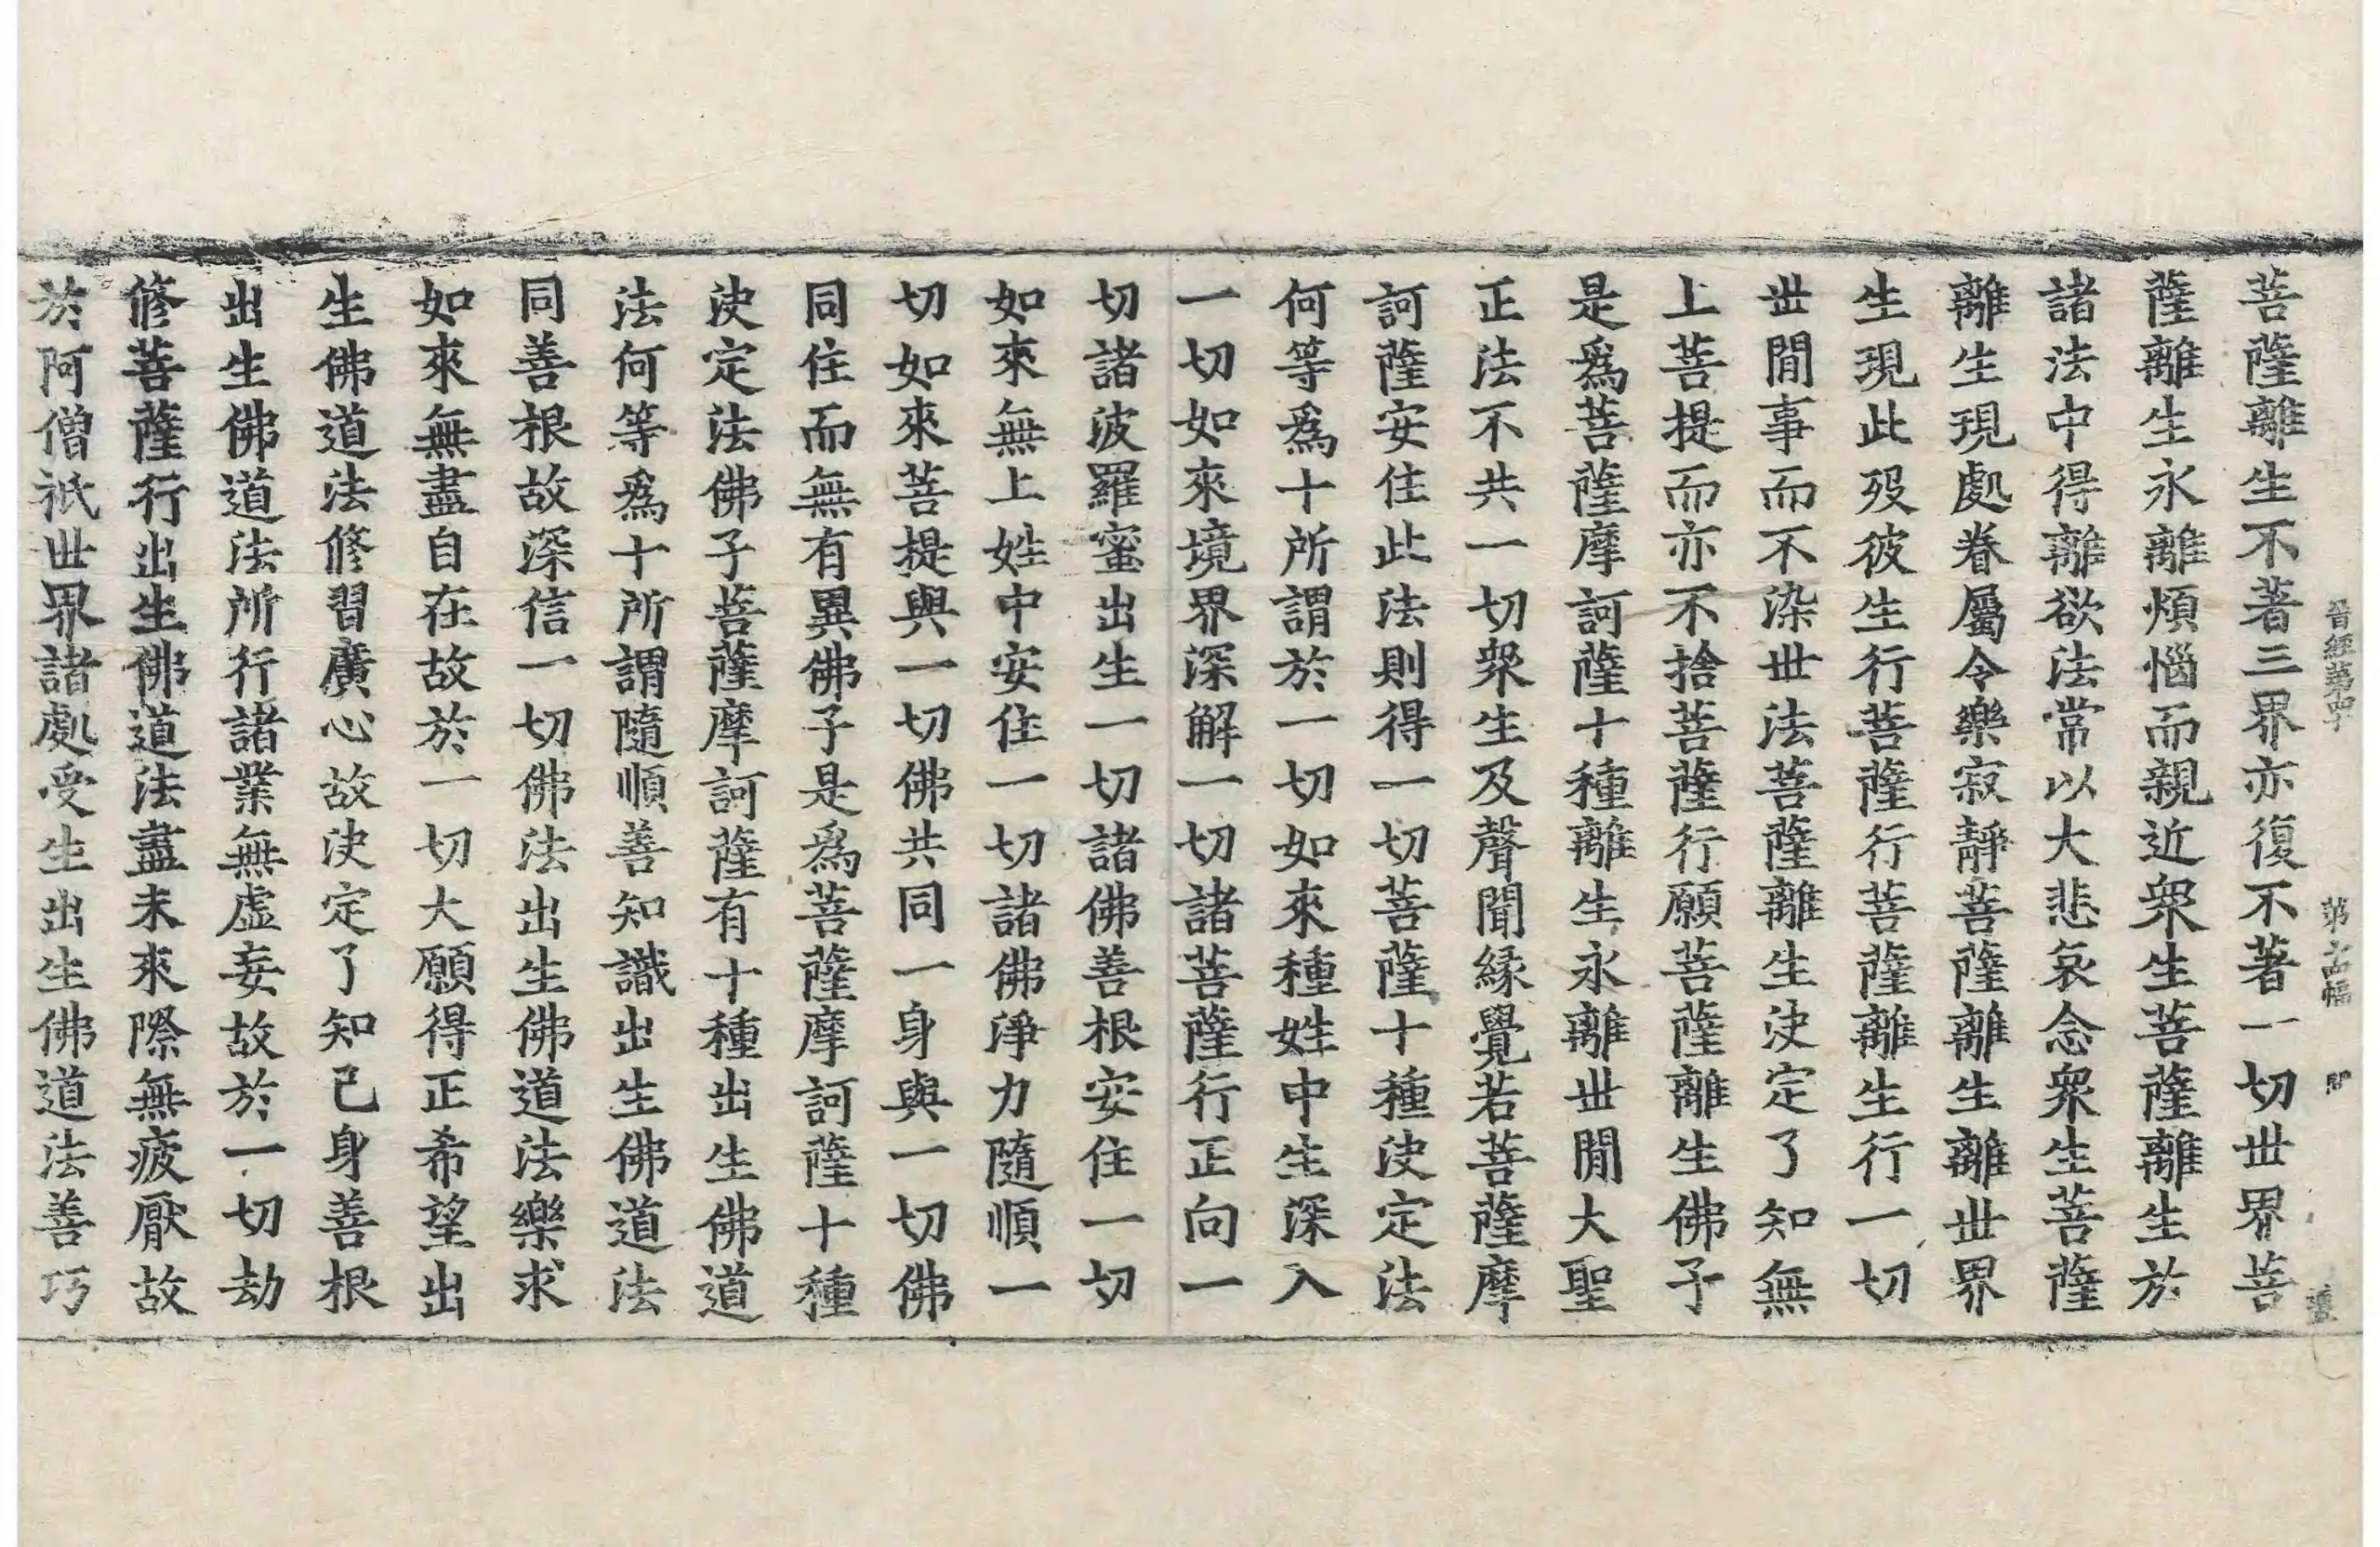 晉經第四十 第十五幅
菩薩離生不著三界亦復不著一切世界菩
薩離生永離煩惱而親近衆生菩薩離生於
諸法中得離欲法常以大悲哀念衆生菩薩
離生現處眷屬令樂寂靜菩薩離生離世界
生現此歿彼生行菩薩行菩薩離生行一切
世間事而不染世法菩薩離生決定了知無
上菩提而亦不捨菩薩行願菩薩離生佛子
是爲菩薩摩訶薩十種離生永離世間大聖
正法不共一切衆生及聲聞緣覺若菩薩摩
訶薩安住此法則得一切菩薩十種決定法
何等爲十所謂於一切如來種姓中生深入
一切如來境界深解一切諸菩薩行正向一
切諸波羅蜜出生一切諸佛善根安住一切
如來無上姓中安住一切諸佛淨力隨順一
切如來菩提與一切佛共同一身與一切佛
同住而無有異佛子是爲菩薩摩訶薩十種
決定法佛子菩薩摩訶薩有十種出生佛道
法何等爲十所謂隨順善知識出生佛道法
同善根故深信一切佛法出生佛道法樂求
如來無盡自在故於一切大願得正希望出
生佛道法修習廣心故決定了知己身善根
出生佛道法所行諸業無虛妄故於一切劫
修菩薩行出生佛道法盡未來際無疲厭故
於阿僧祇世界諸處受生出生佛道法善巧